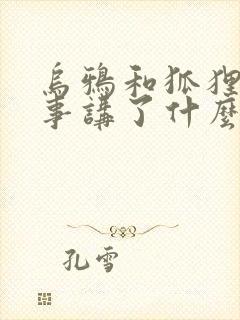 烏鴉和狐狸
事講了什麼
孔雪